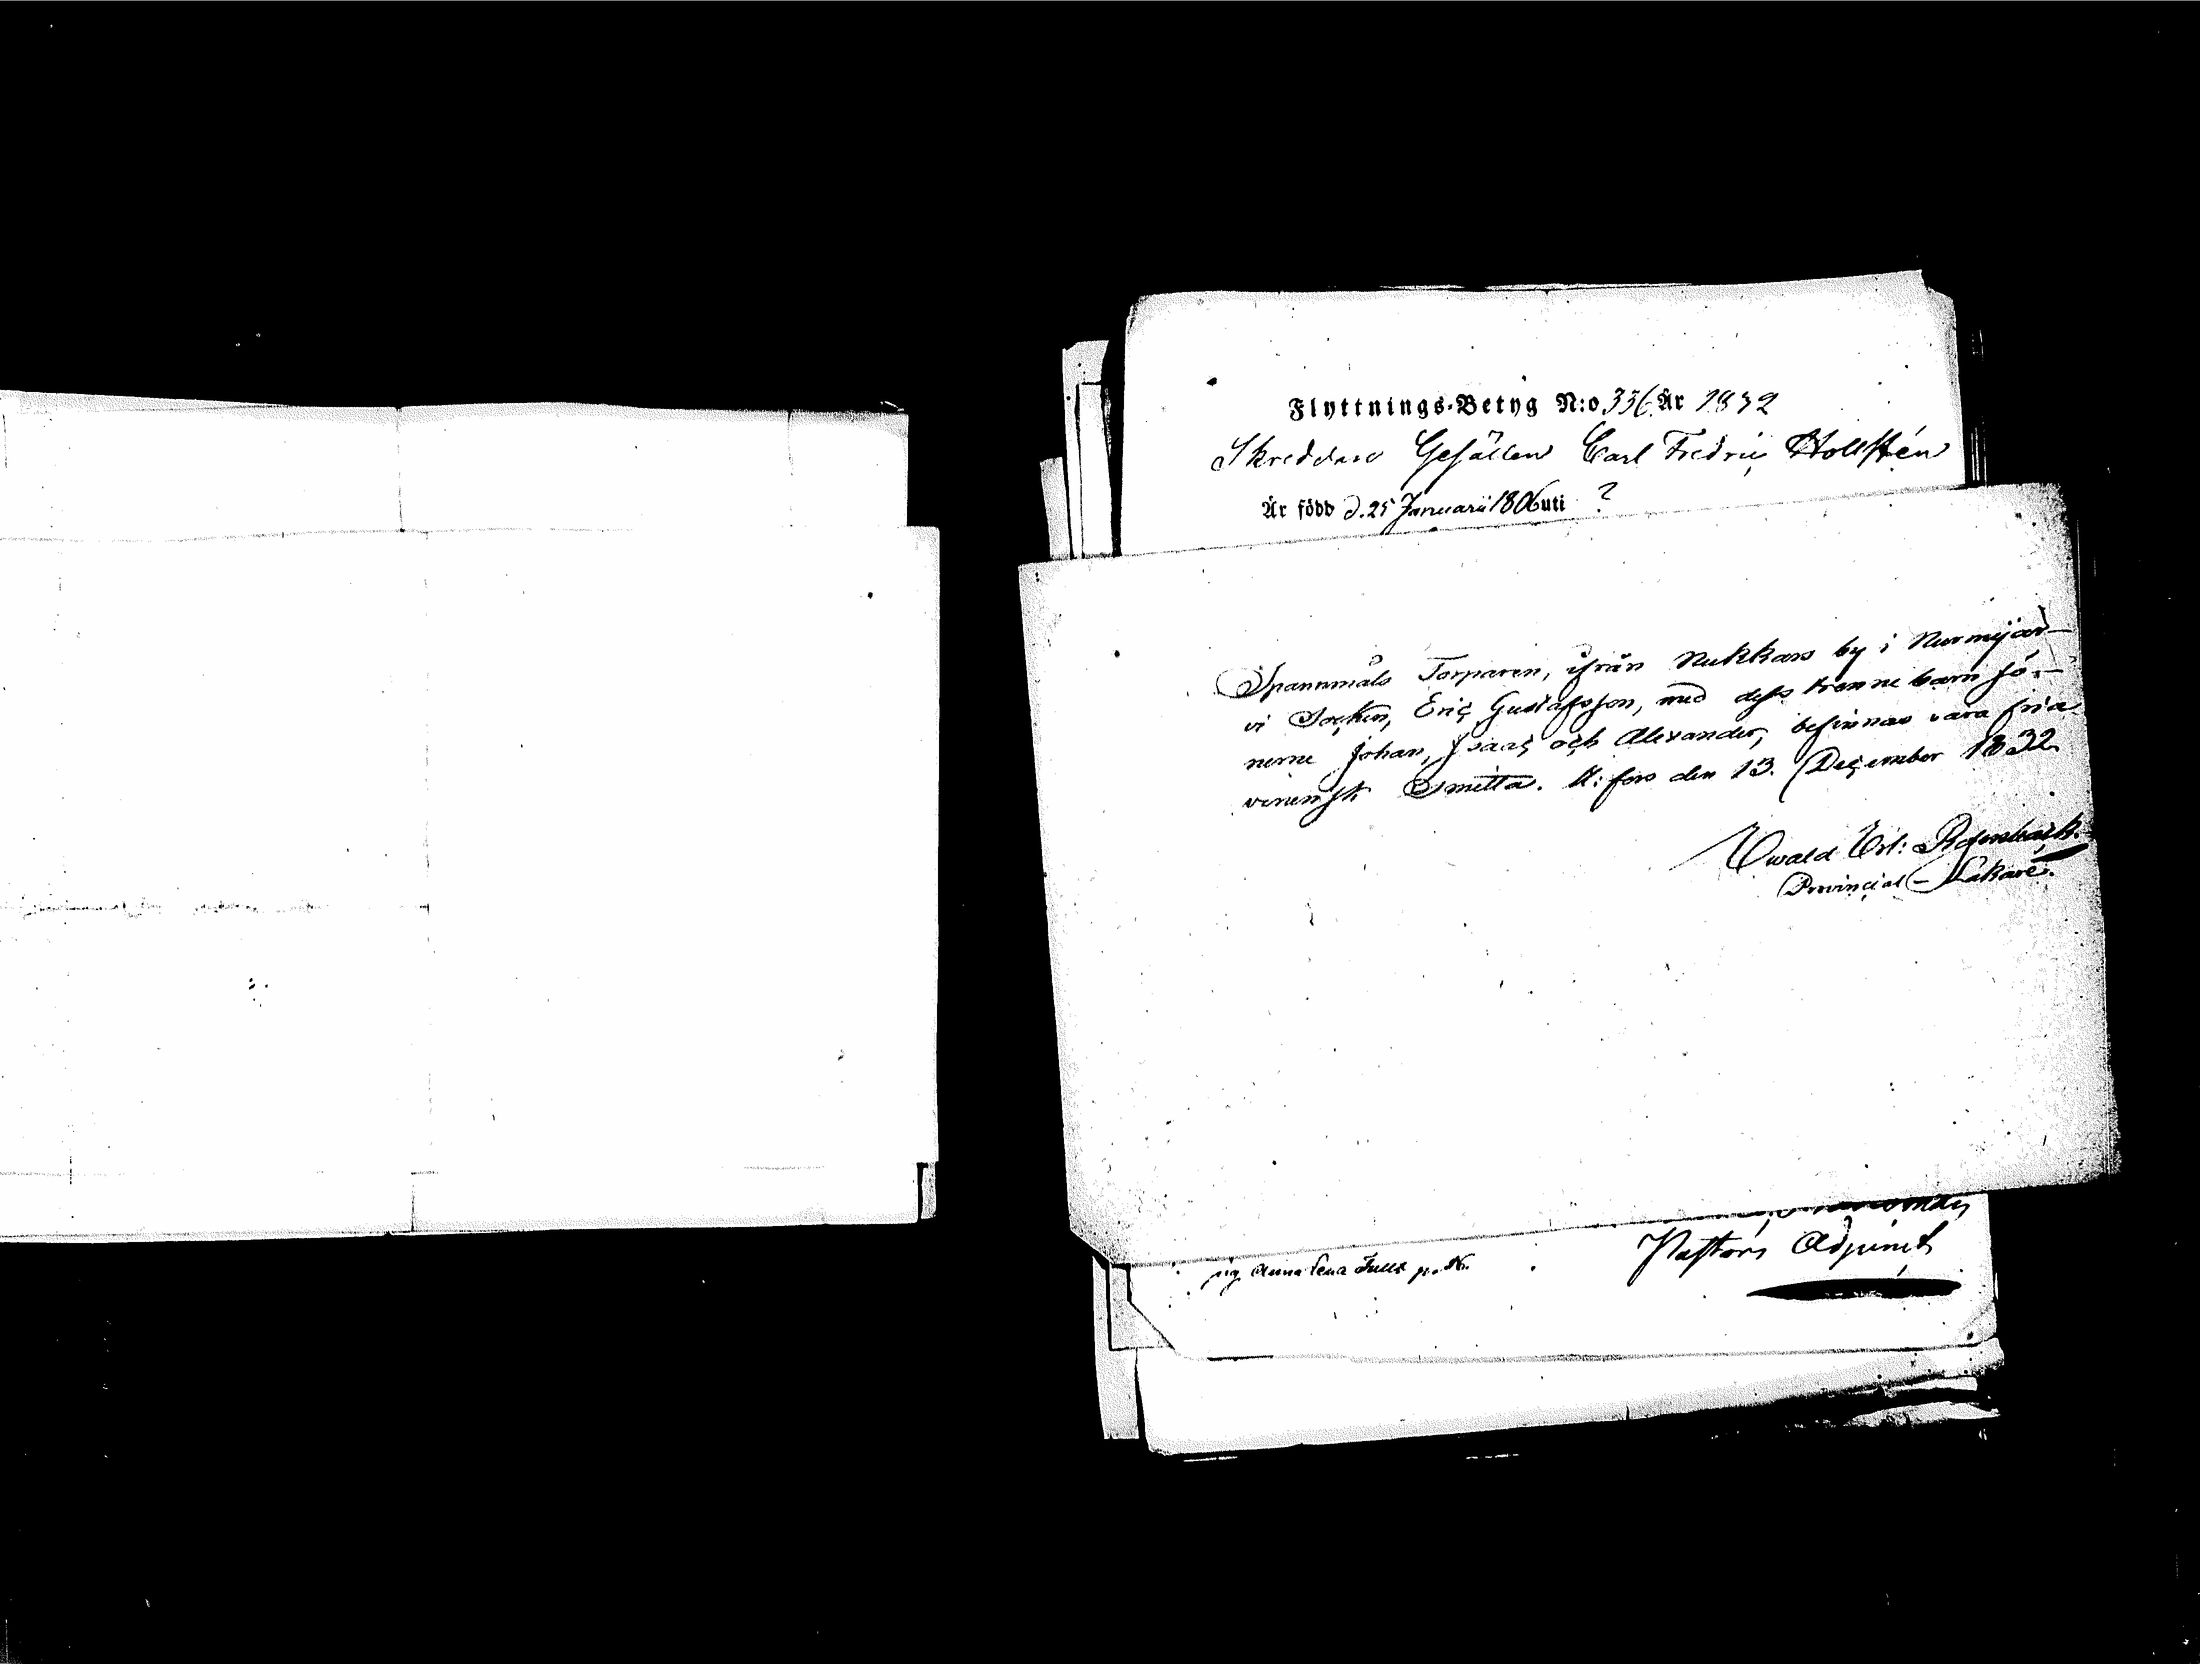 Flyttnings-Betyg N:o 336 År 1832
Skreddare Gesällen Carl Fredric Hollstén
Är född d. 25 Januarii 1806 uti ?
Spannmåls Torparen, ifrån Nukkars by i Nurmijär-
vi Socken, Eric Gustafsson, med dess trenne barn Sö-
nerne Johan, Isaac och Alexander, befinnas vara fria
venerisk Smitta. H:fors den 13. December 1832
Ewald Ert: Rosenback.
Provincial-Läkare.
Pastors Adjunct
sig Anna Lena